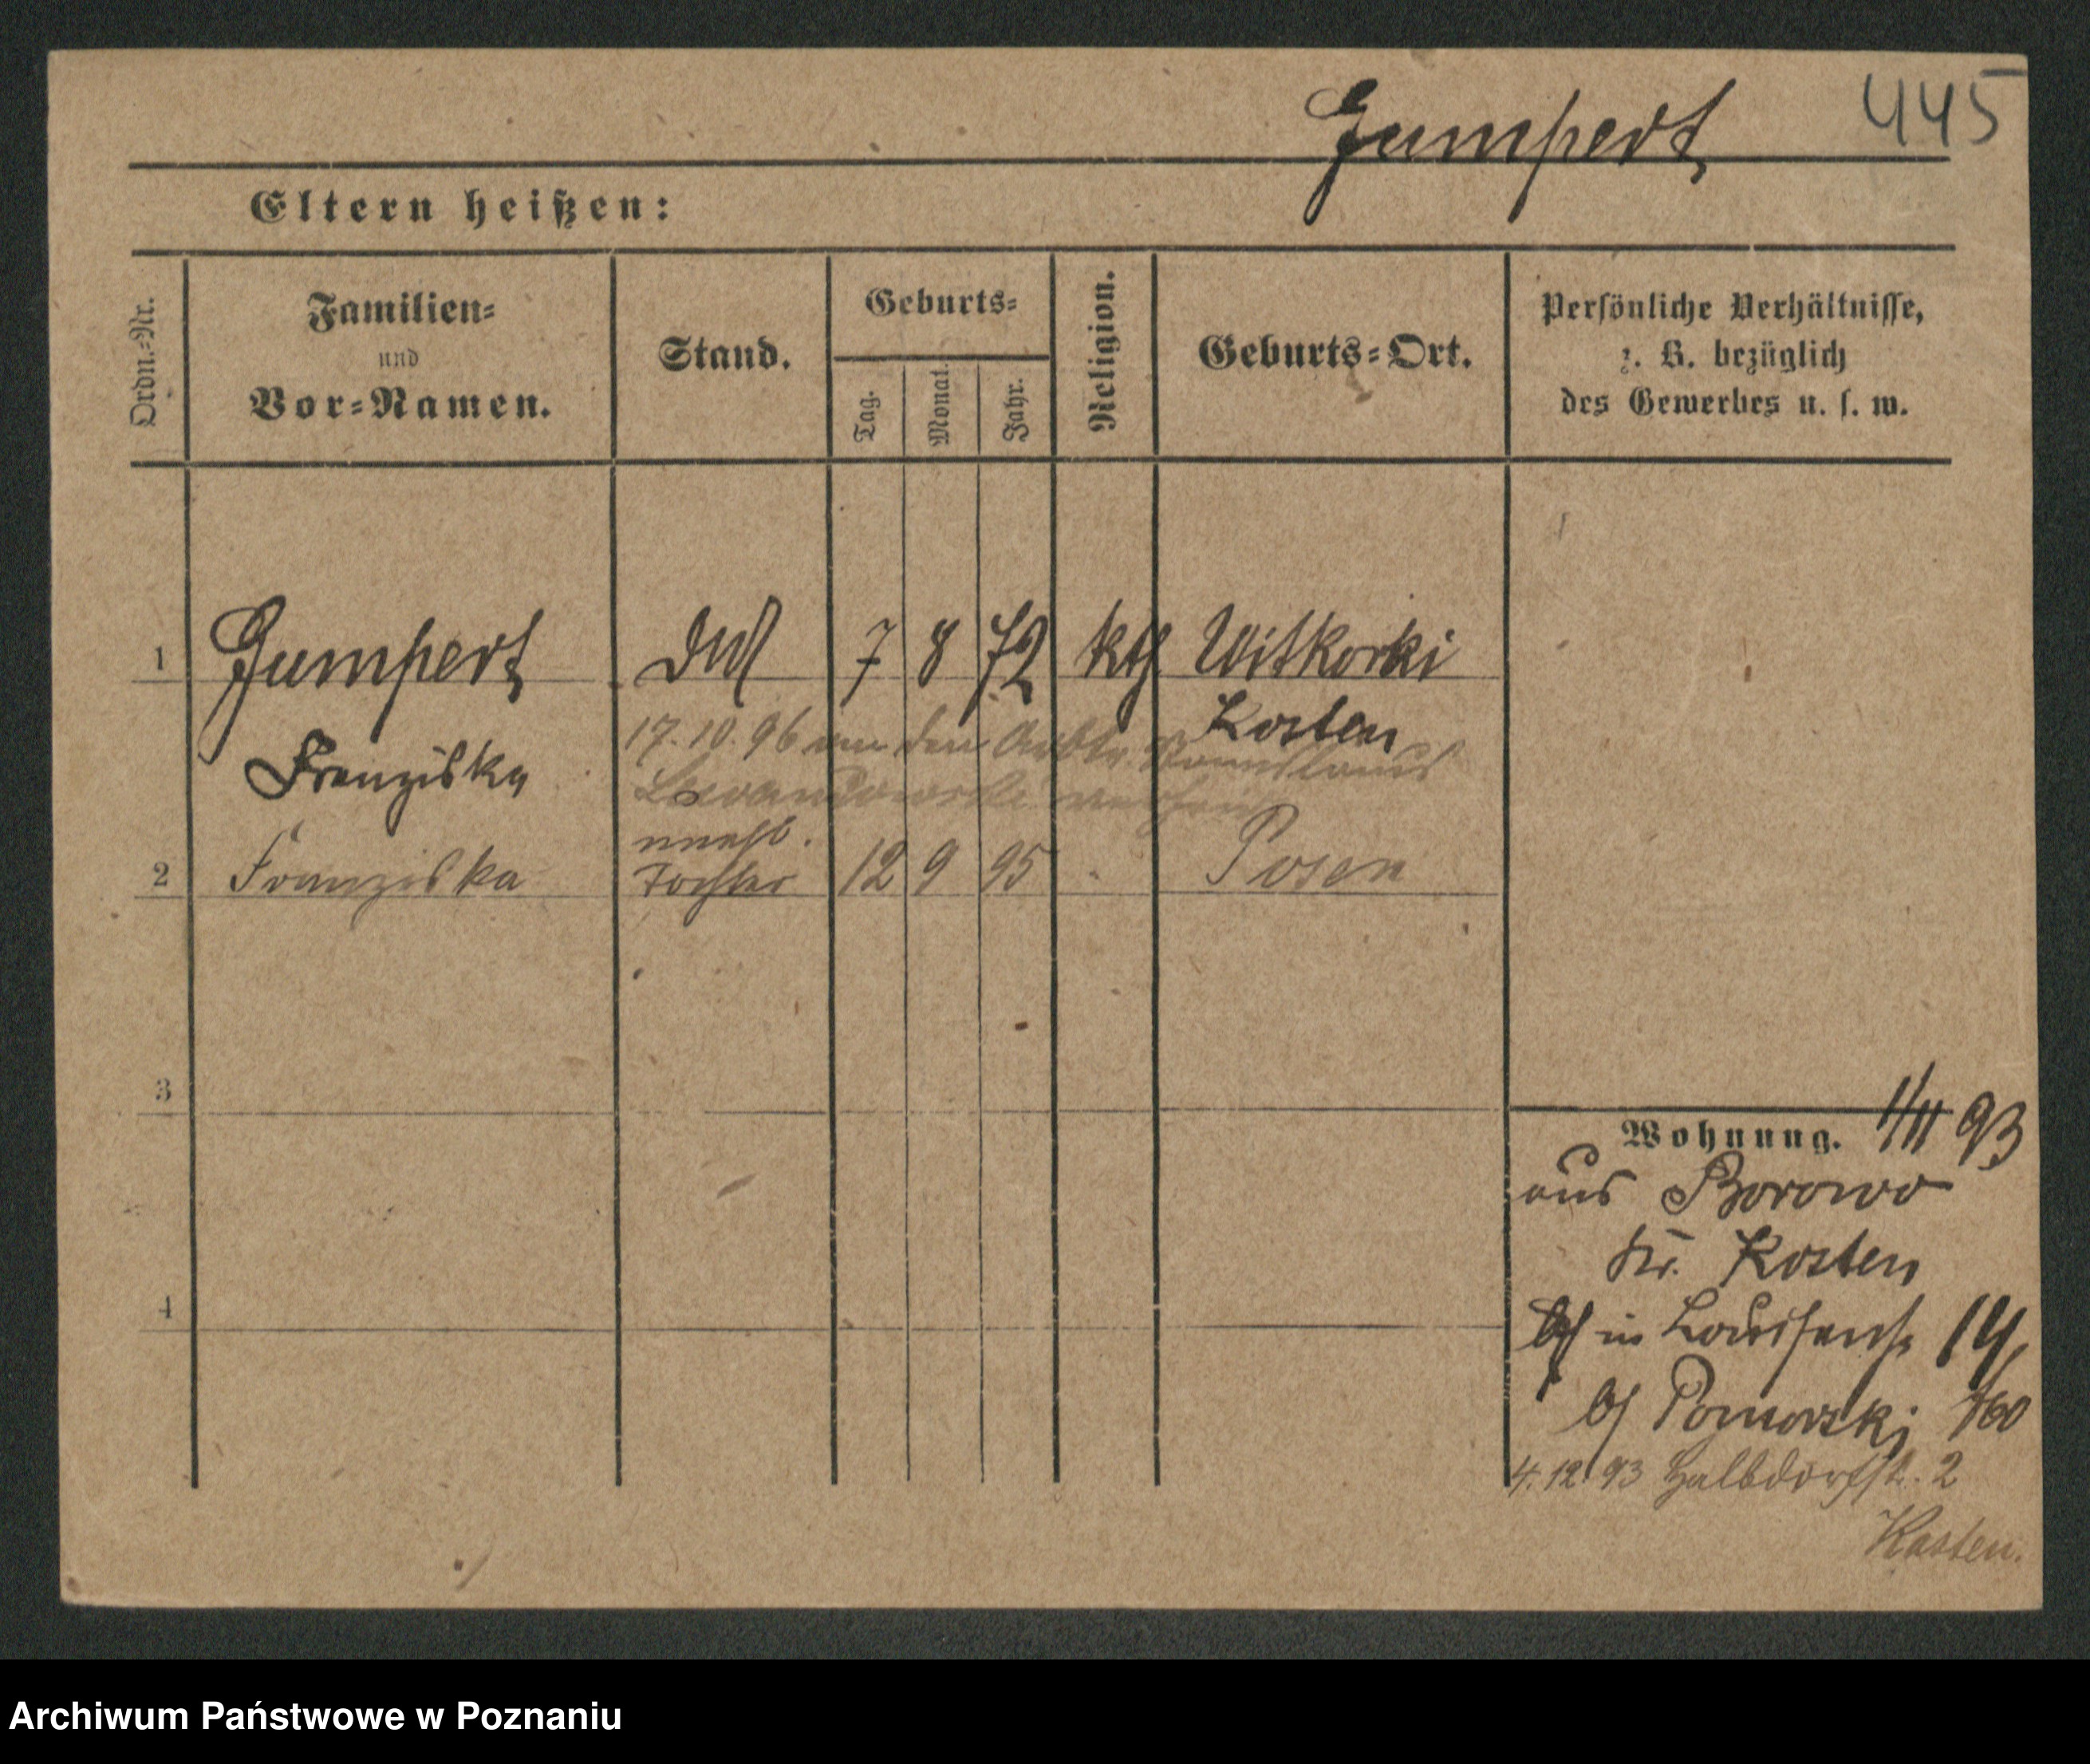 Gumpert 445
Eltern heißen:
Ordn.-Nr.
Familien-
und
Vor-Namen.
Stand.
Geburts-
Tag.
Monat.
Jahr.
Religion.
Geburts-Ort.
Persönliche Verhältnisse,
z. B. bezüglich
des Gewerbes u. s. w.
1 Gumpert 7 8 72 kth Witkorki
Kosten
Franziska
17.10.96 an den Arbtr.
unehl.
2 Franziska Tochter 12 9 95 Posen
3
4
Wohnung. 1/11 93
aus Borowo
Kr. Kosten
in 14,
b/ Pomorski
4.12.93 Halbdorfstr. 2
Kasten.
Archiwum Państwowe w Poznaniu